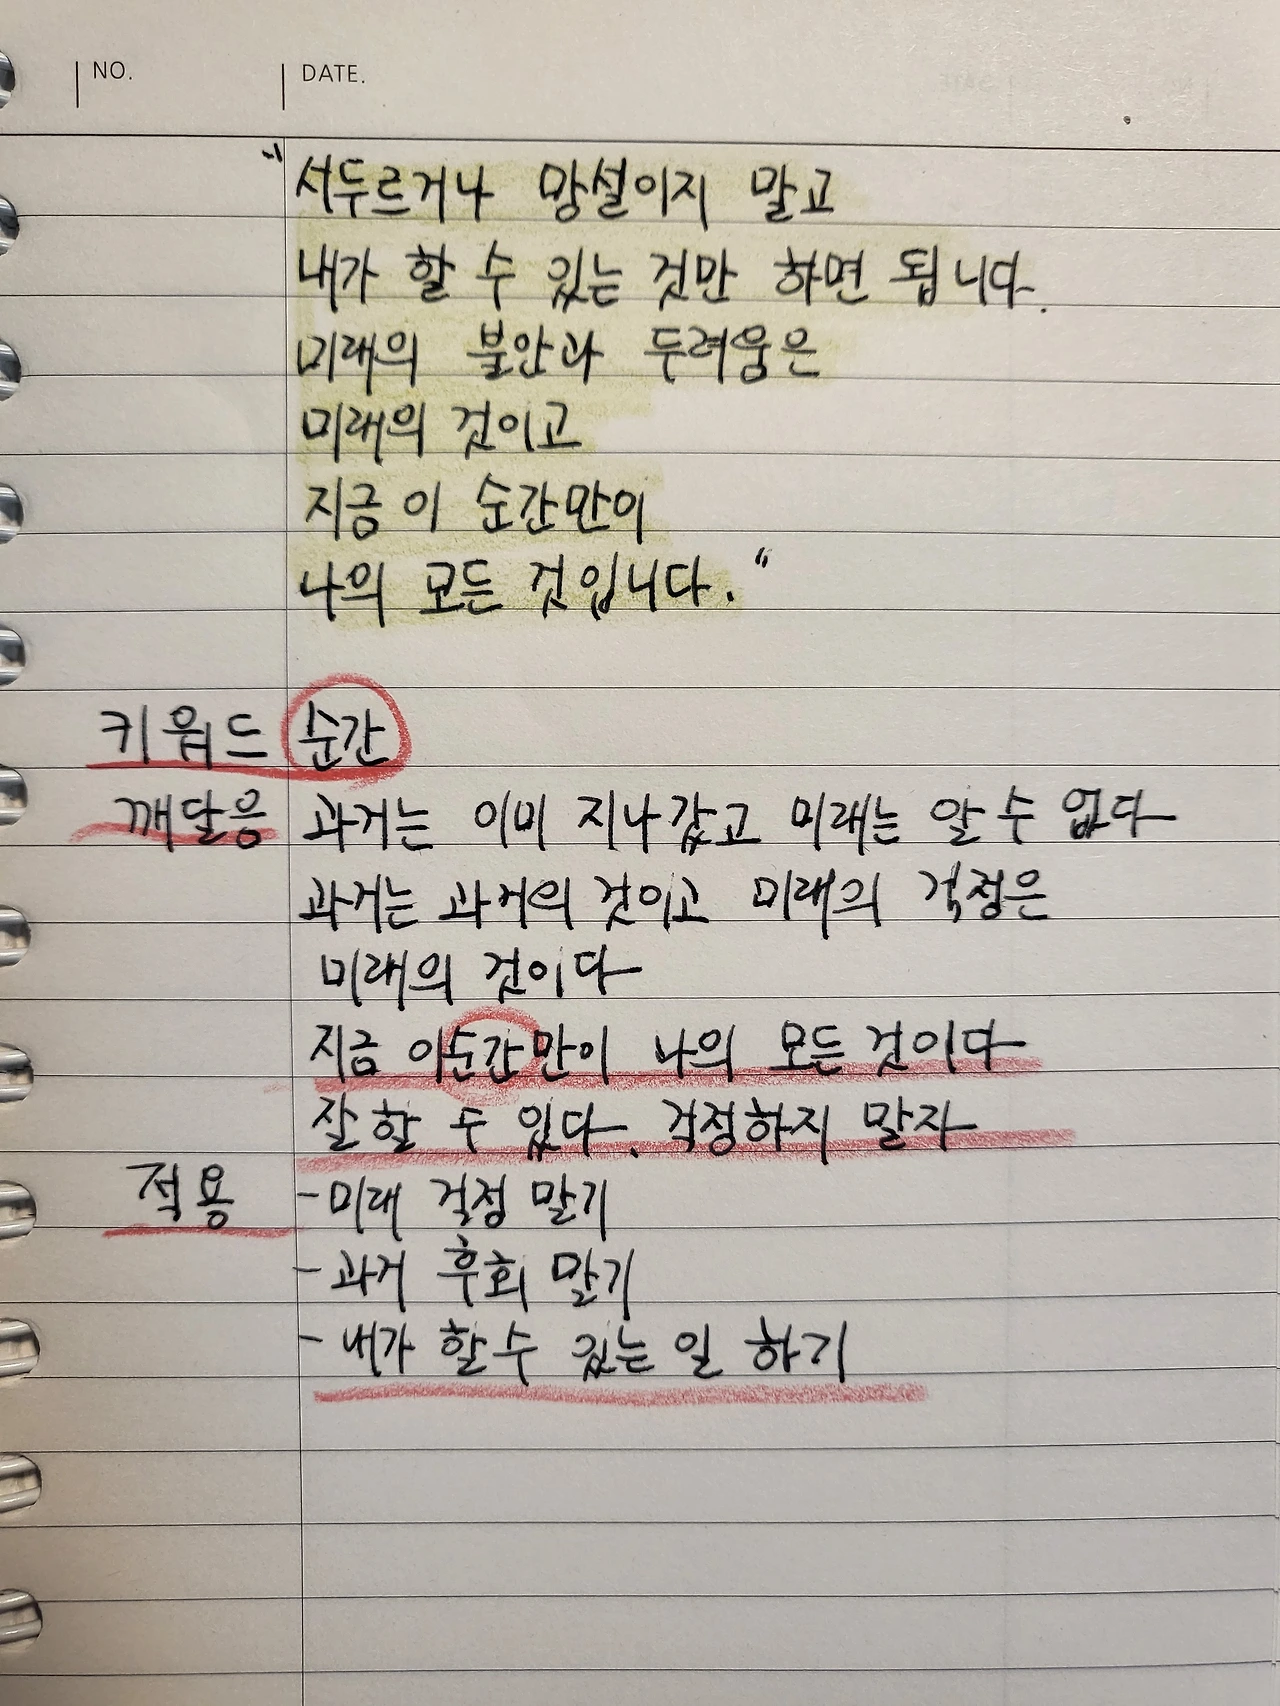 NO. DATE.
"서두르거나 망설이지 말고
내가 할 수 있는 것만 하면 됩니다.
미래의 불안과 두려움은
미래의 것이고
지금 이 순간만이
나의 모든 것입니다."
키워드 순간
깨달음 과거는 이미 지나갔고 미래는 알 수 없다
과거는 과거의 것이고 미래의 걱정은
미래의 것이다
지금 이순간만이 나의 모든 것이다
잘 할 수 있다. 걱정하지 말자
적용 -미래 걱정 말기
-과거 후회 말기
-내가 할 수 있는 일 하기